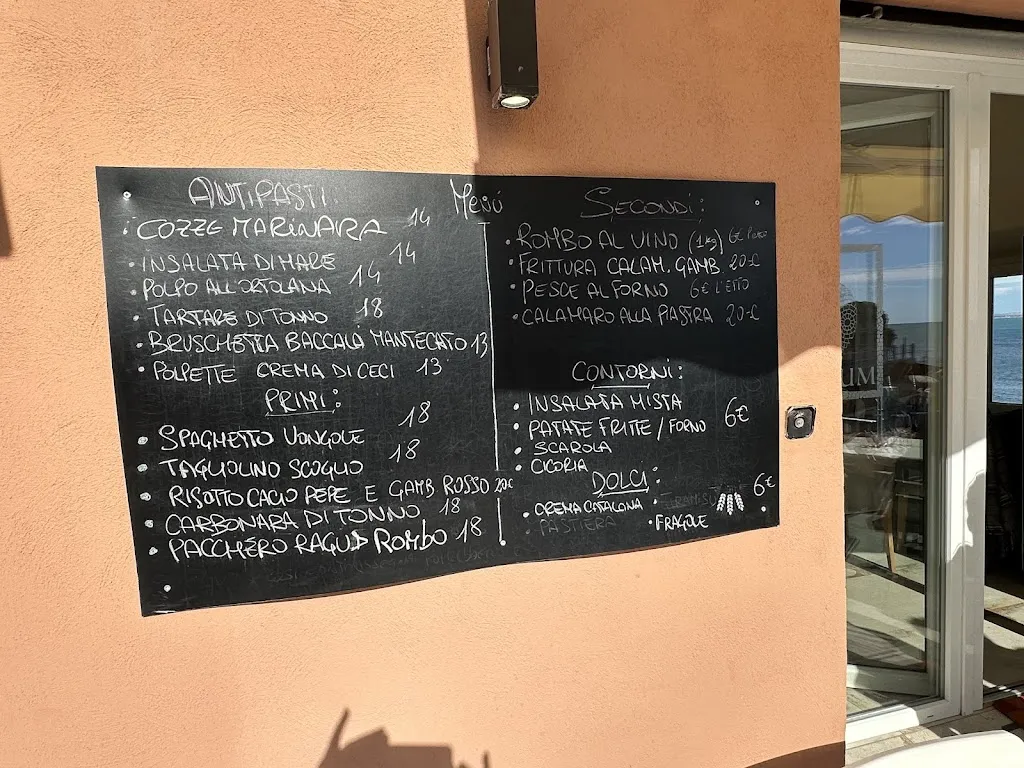 Menú
ANTIPASTI:
COZZE MARINARA 14
INSALATA DI MARE 14
POLPO ALL'ORTOLANA 14
TARTARE DI TONNO 18
BRUSCHETTA BACCALÀ MANTECATO 13
POLPETTE CREMA DI CECI 13
PRIMI:
SPAGHETTO VONGOLE 18
TAGLIOLINO SCOGLIO 18
RISOTTO CACIO PEPE E GAMB ROSSO 20€
CARBONARA DI TONNO 18
PACCHERO RAGÙ ROMBO 18
SECONDI:
ROMBO AL VINO (1kg) 6€
FRITTURA CALAM. GAMB. 20€
PESCE AL FORNO 6€ L'ETTO
CALAMARO ALLA PIASTRA 20€
CONTORNI:
INSALATA MISTA
PATATE FRITTE / FORNO 6€
SCAROLA
CICORIA
DOLCI:
CREMA CATALANA TIRAMISU 6€
PASTIERA FRAGOLE
UM